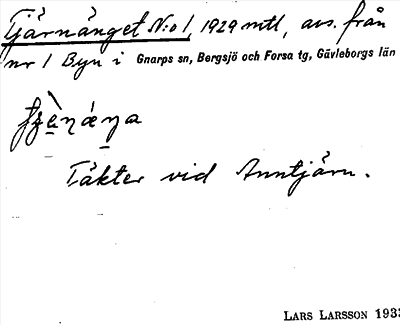 Tjärnänget N:o 1, 1929 mtl, avs. från
nr 1 Byn i Gnarps sn, Bergsjö och Forsa tg, Gävleborgs län
Täkter vid Anntjärn.
LARS LARSSON 1933